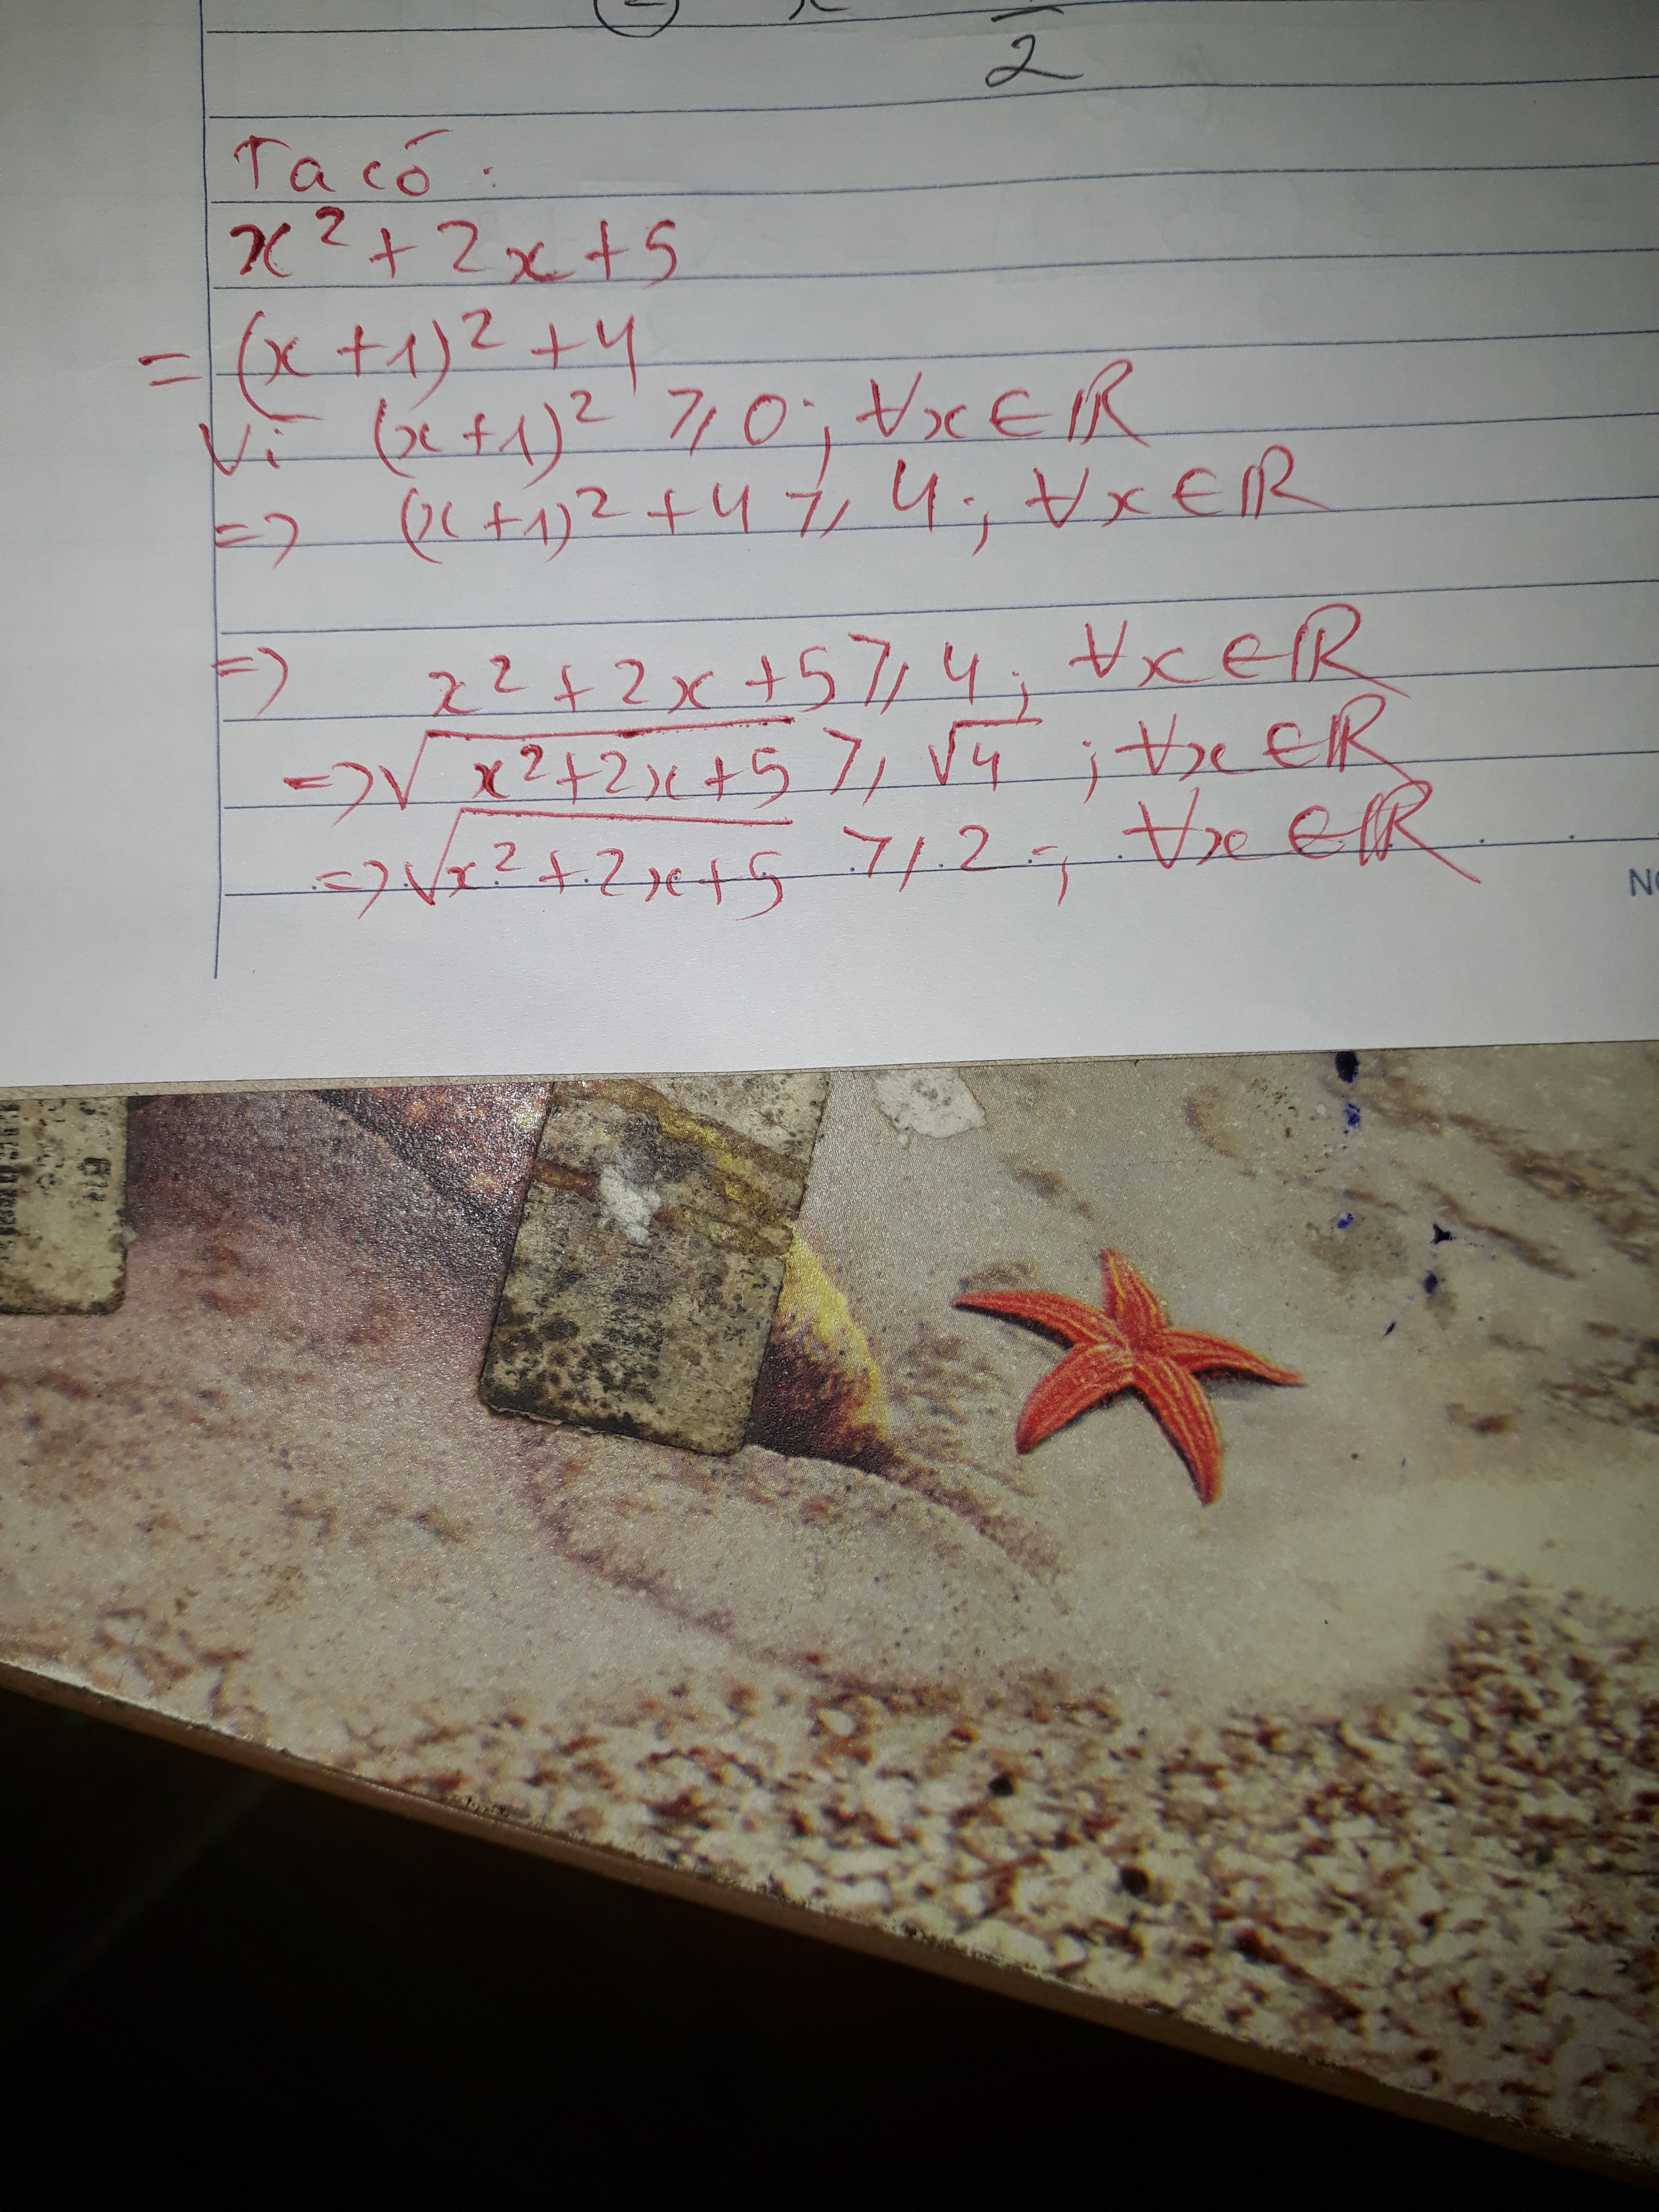 2
Ta có:
x² + 2x + 5
= (x + 1)² + 4
Vì (x + 1)² ≥ 0; ∀x ∈ ℝ
=> (x + 1)² + 4 ≥ 4; ∀x ∈ ℝ
=> x² + 2x + 5 ≥ 4; ∀x ∈ ℝ
=> √(x² + 2x + 5) ≥ √4; ∀x ∈ ℝ
=> √(x² + 2x + 5) ≥ 2; ∀x ∈ ℝ